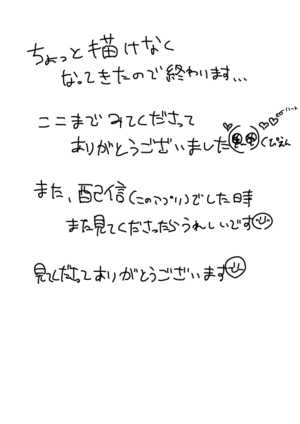 ちょっと描けなく
なってきたので終わります...
ここまでみてくださって
ありがとうございました
←ハート
くぴえん
また、配信(このアプリ)でした時
また見てくださったらうれしいです
見てくださってありがとうございます